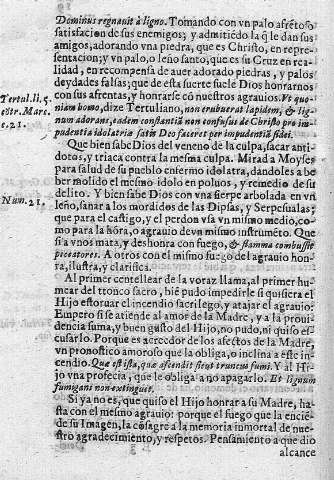 Dominus regnauit à ligno. Tomando con vn palo afrẽtoso
satisfacion de sus enemigos; y admitiẽdo la q̃ le dan sus
amigos, adorando vna piedra, que es Christo, en repre-
sentacion; y vn palo, o leño santo, que es su Cruz en rea-
lidad, en recompensa de auer adorado piedras, y palos
deydades falsas; que de esta suerte suele Dios honrarnos
con sus afrentas, y honrarse cõ nuestros agrauios. Vt quo-
Tertul. li. 5.
niam homo, dize Tertuliano, non erubuerat lapidem, & lig-
cõtr. Marc.
num adorans, eadem constantiã non confusus de Christo pro im-
c. 21.
pudentia idolatriæ satis Deo faceret per impudentiã fidei.
Que bien sabe Dios del veneno de la culpa, sacar anti-
dotos, y triaca contra la mesma culpa. Mirad a Moyses
para salud de su pueblo enfermo idolatra, dandoles a be-
ber molido el mesmo idolo en poluos, y remedio de su
delito. Y bien sabe Dios con vna sierpe arbolada en vn
Num. 21.
leño, sanar a los mordidos de las Dipsas, y Serpes aladas:
que para el castigo, y el perdon vsa vn mismo medio, co-
mo para la hõra, o agrauio deun mismo instrumẽto. Que
si a vnos mata, y deshonra con fuego, & flamma combussit
peccatores. A otros con el mismo fuego del agrauio hon-
ra, ilustra, y clarifica.
Al primer centellear de la voraz llama, al primer hu-
mear del tronco sacro, biẽ pudo impedirle si quisiera el
Hijo estoruar el incendio sacrilego, y atajar el agrauio:
Empero si se atiende al amor de la Madre, y a la proui-
dencia suma, y buen gusto del Hijo, no pudo, ni quiso es-
cusarlo. Porque es acreedor de los afectos de la Madre,
vn pronostico amoroso que la obliga, o inclina a este in-
cendio. Quæ est ista, quæ ascendit sicut virgula fumi. Y al Hi-
jo vna profecia, que le obliga a no apagarlo. Et lignum
fumigans non extinguet.
Si ya no es, que quiso el Hijo honrar a su Madre, has-
ta con el mesmo agrauio: porque el fuego que la encie-
de su Imagen, la cõsagre a la memoria inmortal de nues-
tro agradecimiento, y respetos. Pensamiento a que dio
alcance